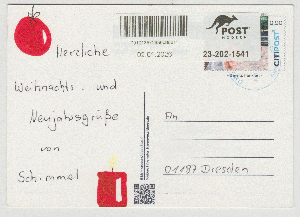 Herzliche
Weihnachts- und
Neujahrsgrüße
von
Schimmel
00.01.2020
POST
MODERN
23-202-1541
CITIPOST
An
01187 Dresden